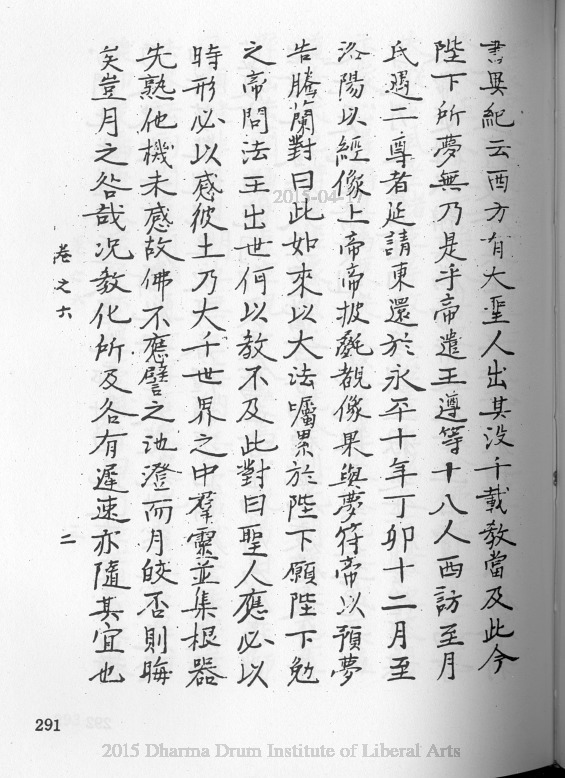 書異紀云西方有大聖人出其没千載教當及此今
陛下所夢無乃是乎帝遣王遵等十八人西訪至月
氏遇二尊者延請東還於永平十年丁卯十二月至
洛陽以經像上帝帝披㲲覩像果與夢符帝以預夢
告騰蘭對曰此如來以大法囑累於陛下願陛下勉
之帝問法王出世何以教不及此對曰聖人應必以
時形必以感彼土乃大千世界之中羣靈並集根器
先熟他機未感故佛不應譬之池澄而月皎否則晦
矣豈月之咎哉况教化所及各有遲速亦隨其宜也
卷之六
二
291
2015-04-17
2015 Dharma Drum Institute of Liberal Arts